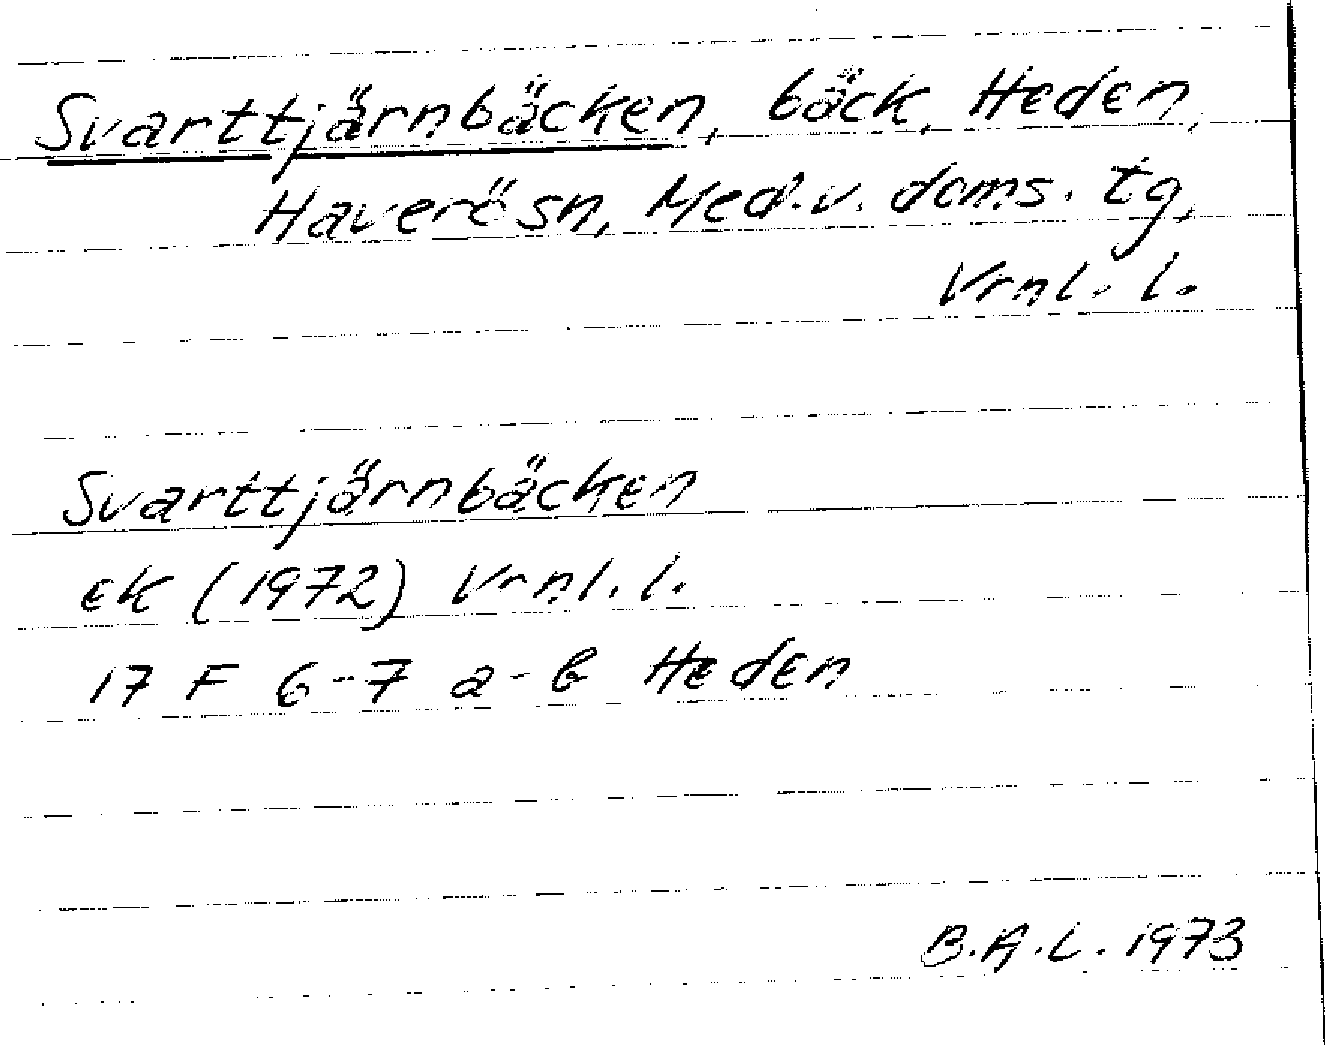 Svarttjärnbäcken, bäck, Heden,
Haverö sn, Med.v. doms. tg,
Vrnl. l.
Svarttjärnbäcken
EK (1972) Vrnl. l.
17 F 6-7 a-b Heden
B.A.L. 1973